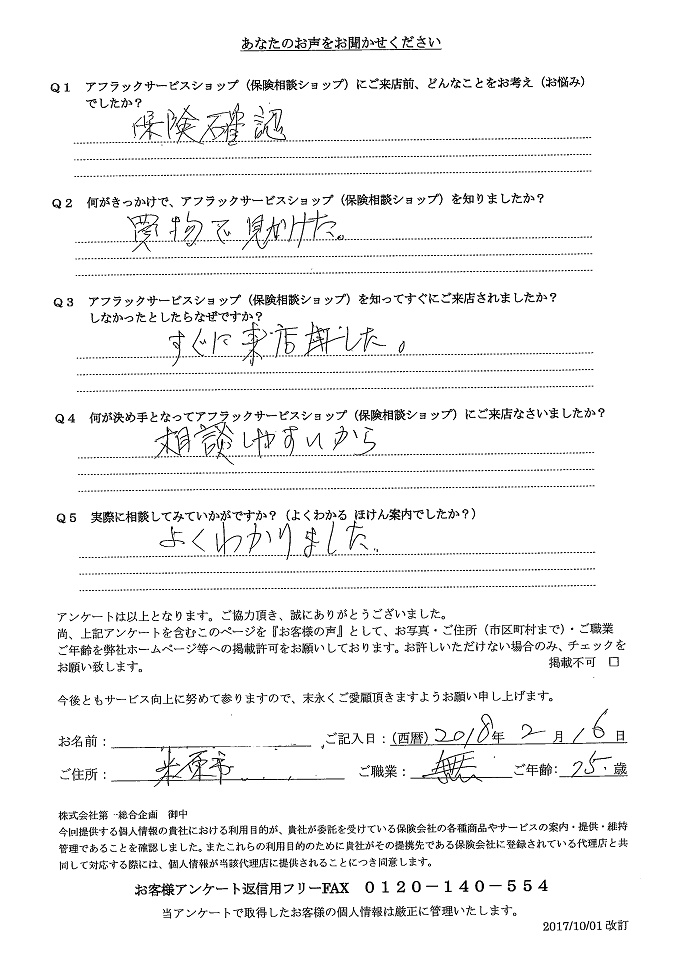 あなたのお声をお聞かせください
Q1 アフラックサービスショップ（保険相談ショップ）にご来店前、どんなことをお考え（お悩み）
でしたか？
保険確認
Q2 何がきっかけで、アフラックサービスショップ（保険相談ショップ）を知りましたか？
買物で見かけた。
Q3 アフラックサービスショップ（保険相談ショップ）を知ってすぐにご来店されましたか？
しなかったとしたらなぜですか？
すぐに来店しました。
Q4 何が決め手となってアフラックサービスショップ（保険相談ショップ）にご来店なさいましたか？
相談しやすいから
Q5 実際に相談してみていかがですか？（よくわかる ほけん案内でしたか？）
よくわかりました
アンケートは以上となります。ご協力頂き、誠にありがとうございました。
尚、上記アンケートを含むこのページを『お客様の声』として、お写真・ご住所（市区町村まで）・ご職業
ご年齢を弊社ホームページ等への掲載許可をお願いしております。お許しいただけない場合のみ、チェックを
お願い致します。 掲載不可 □
今後ともサービス向上に努めて参りますので、末永くご愛顧頂きますようお願い申し上げます。
お名前： ご記入日：（西暦）2018年 2 月 16 日
ご住所： 米原市 ご職業： 無 ご年齢： 75 歳
株式会社第一総合企画 御中
今回提供する個人情報の貴社における利用目的が、貴社が委託を受けている保険会社の各種商品やサービスの案内・提供・維持
管理であることを確認しました。またこれらの利用目的のために貴社がその提携先である保険会社に登録されている代理店と共
同して対応する際には、個人情報が当該代理店に提供されることにつき同意します。
お客様アンケート返信用フリーFAX ０１２０－１４０－５５４
当アンケートで取得したお客様の個人情報は厳正に管理いたします。
2017/10/01 改訂